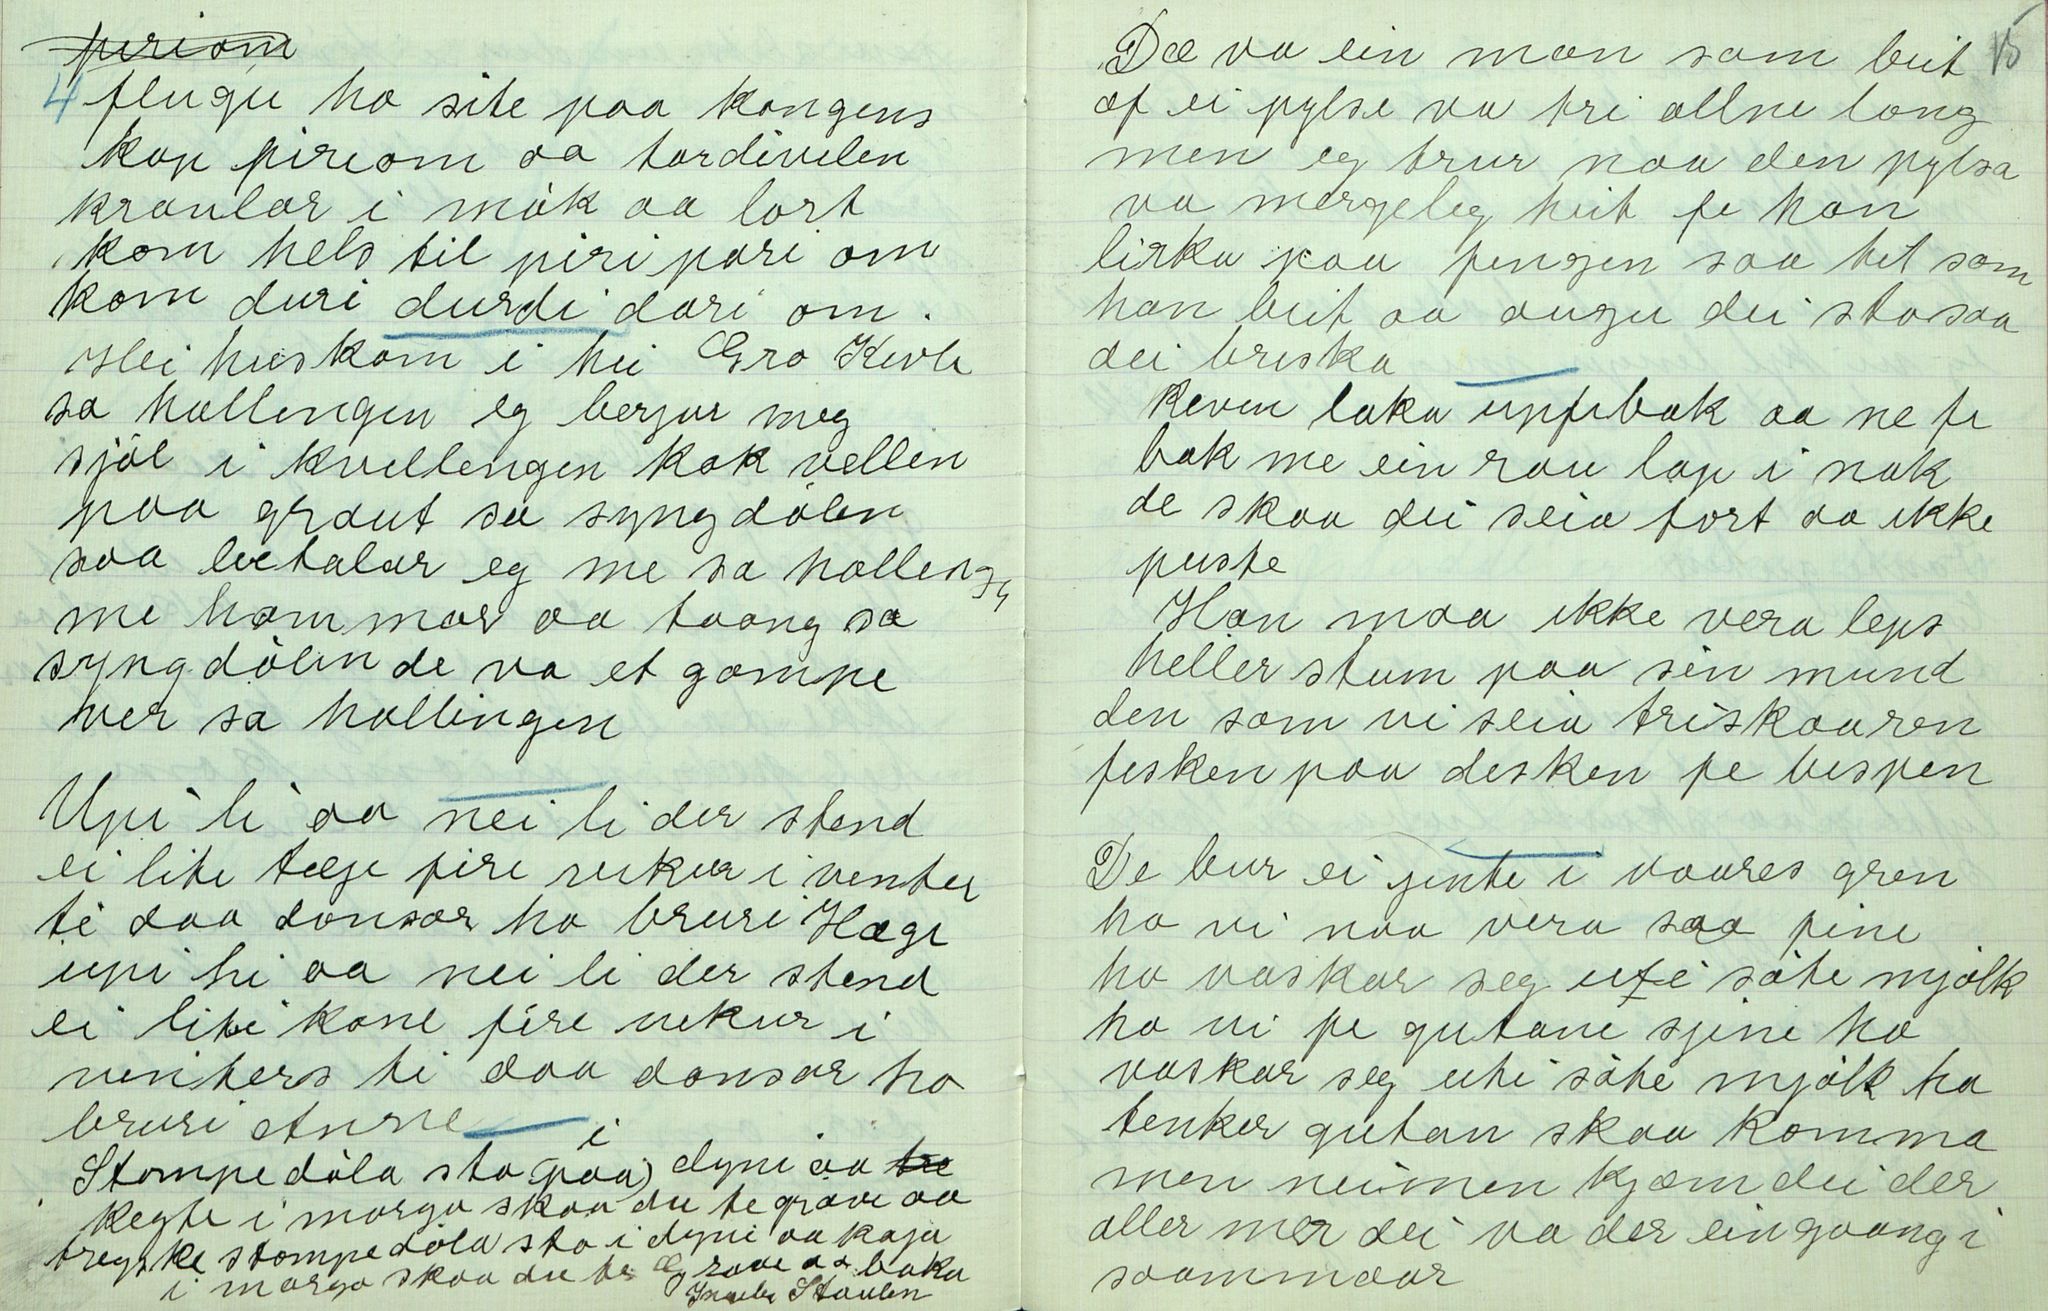 piriom
4 flugu ho site paa kongens
kop piriom aa tordivelen
kraular i mòk aa lort
kom hels til piri pari om
kom duri durdi dari om.
Hei huskom i hei Gro Kivle
sa hallingen eg berjar meg
sjòl i kvellingen kok vellin
paa graut sa syngdòlen
saa betalar eg me sa hallingen
me hammar aa taang sa
syngdòlin de va et gompe
ver sa hallingen
Upi li aa nei li der stend
ei lite tæge fire vekur i venter
te daa donsar ho bruri Hæge
upi li aa nei li der stend
ei lite kone fire vekur i
venters te daa donsar ho
bruri Anne
Stompedòla sto (paa) i dyni aa tre
kegte i morgo skaa du te gròve aa
tregske stompedòla sto i dyni aa kaga
i morgo skaa du te Grove aa baka
Staulen
15
Dæ va ein man som beit
af ei pylse va tri allne long
men eg trur naa den pylsa
va mergeleg heit fe han
lirka paa fengen saa het som
han beit aa augu dei sto saa
dei briska
Reven laka upfebak aa ne fe
bak me ein rau lap i nak
de skaa dei seia fort aa ikke
puste
Han maa ikke vera leps
heller stum paa sin mund
den som vi seia triskaaren
fesken paa desken fe bispen
De bur ei jente i vaares gren
ho vi naa vera saa fine
ho vaskar seg uti sòte mjòlk
ho vi fe gutane sjine ho
vaskar seg uti sòte mjòlk ho
tenker gutan skaa komma
men neimen kjæm dei der
aller mer dei va der ein gaang i
saammaar